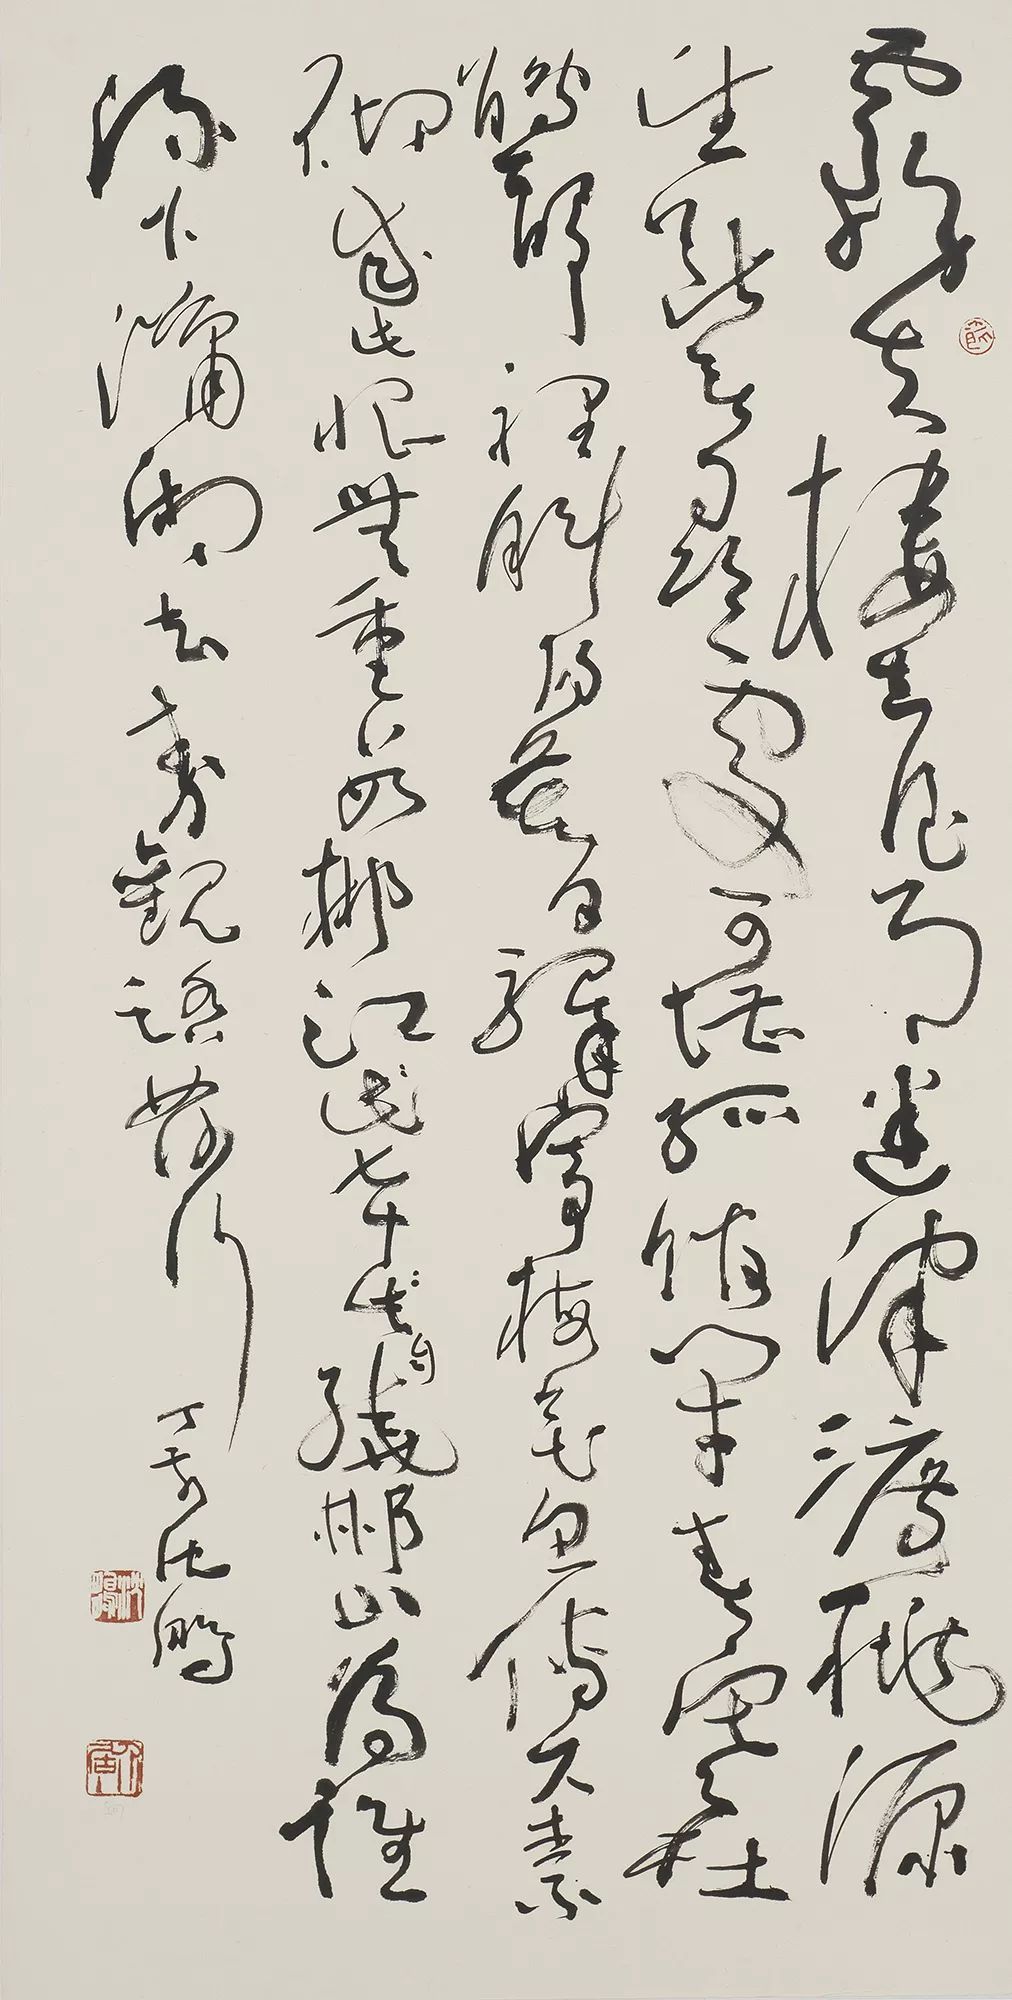 霧失樓臺月迷津渡桃源
望斷無尋處可堪孤館閉春寒杜
鵑聲裡斜陽暮驛寄梅花魚傳尺素
砌成此恨無重數郴江幸自繞郴山為誰
流下瀟湘去秦觀踏莎行
丁亥沈鵬
沈鵬
介居